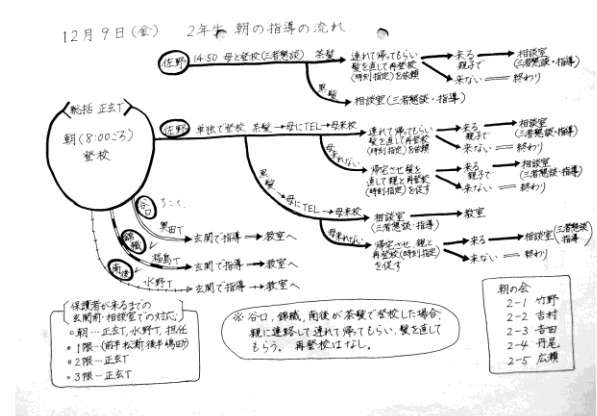 12月9日(金) 2年生 朝の指導の流れ
佐野 14:50 母と登校(三者懇談) 茶髪 連れて帰ってもらい 髪を直して再登校 (時刻指定)を依頼
来る 親子で 相談室 (三者懇談・指導)
来ない 終わり
黒髪 相談室(三者懇談・指導)
総括 正玄T
朝(8:00ごろ)
登校
佐野 単独で登校 茶髪 母にTEL 母来校 連れて帰ってもらい 髪を直して再登校 (時刻指定)を依頼
来る 親子で 相談室 (三者懇談・指導)
来ない 終わり
母来れない 帰宅させ髪を 直して親と再登校 (時刻指定)を促す
来る 親子で 相談室 (三者懇談・指導)
来ない 終わり
黒髪 母にTEL 母来校 相談室 (三者懇談・指導) 教室
母来れない 帰宅させ、親と 再登校(時刻指定) を促す
来る 相談室(三者懇談・指導)
来ない 終わり
谷口 奥田T 玄関で指導 教室へ
錦織 福島T 玄関で指導 教室へ
南後 水野T 玄関で指導 教室へ
保護者が来るまでの
玄関前・相談室での対応
・朝…正玄T,水野T,担任
・1限…(前半松浦 後半嶋田)
・2限…正玄T
・3限…正玄T
※谷口,錦織,南後が茶髪で登校した場合,
親に連絡して連れて帰ってもらい,髪を直して
もらう。 再登校はなし。
朝の会
2-1 竹野
2-2 吉村
2-3 吉田
2-4 丹尾
2-5 広瀬